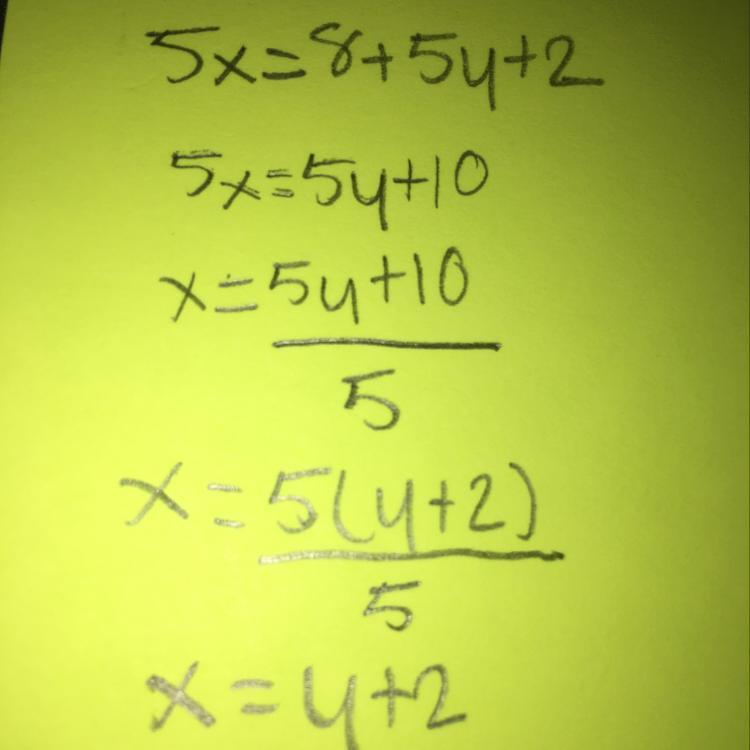 5x=8+5y+2
5x=5y+10
x=5y+10
5
x=5(y+2)
5
x=y+2